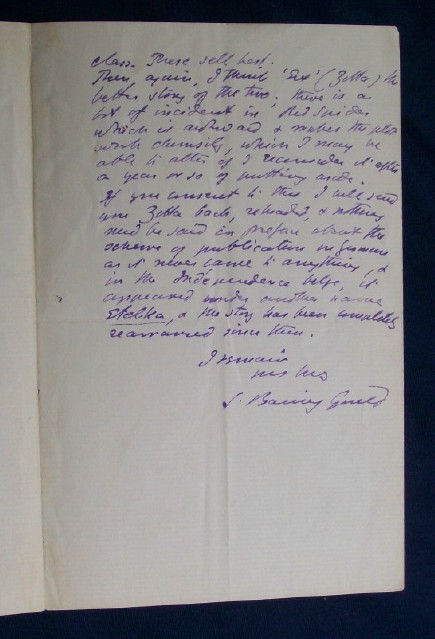 class. These sell best.
Then, again, I think '' (Zitta) the
better story of the two; there is a
bit of incident in Red Spider
which is awkward & makes the plot
work clumsily, which I may be
able to alter if I reconsider it after
a year or so of putting aside.
If you consent to this I will send
you Zitta back, reheaded, & nothing
need be said in preface about the
scheme of publication in German
as it never came to anything, &
in the Independence belge, it
appeared under another name
Etelka, & the story has been completely
rearranged since then.
I remain
S. Baring Gould